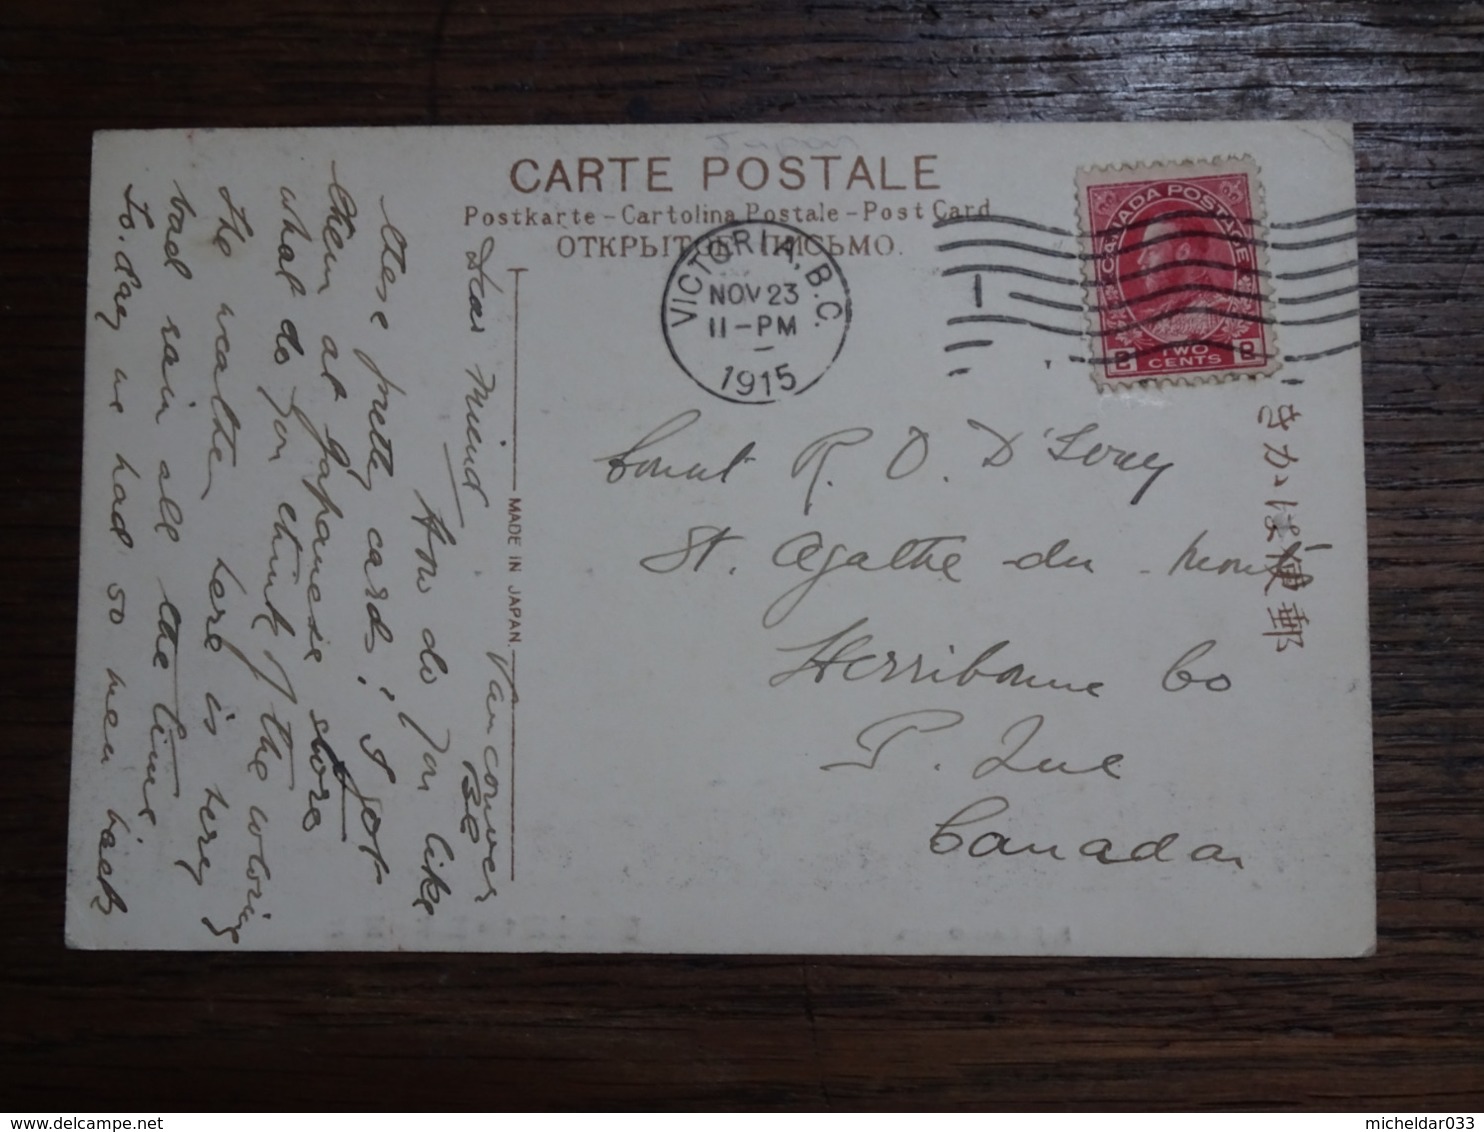 CARTE POSTALE
Postkarte - Cartolina Postale - Post Card
ОТКРЫТОЕ ПИСЬМО.
VICTORIA, B.C.
NOV 23
11-PM
1915
1
CANADA POSTAGE
2 TWO CENTS 2
きかは便郵
MADE IN JAPAN.
Vancouver
BC
Dear Friend
How do you like
these pretty cards, I got
them at Japanese store
what do you think of the
the weather here is very
bad rain all the time
To.day we had so men back
R. O. D'
St. Agathe du Monts
Co
P. Que
Canada
micheldar033